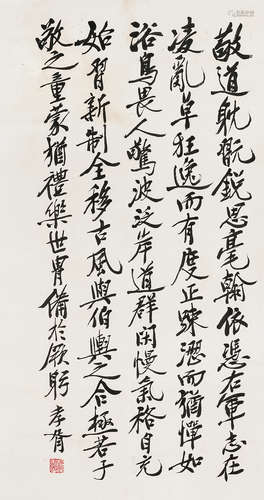 敬道耽翫銳思毫翰依憑右軍志在
凌亂草狂逸而有度正疎澀而猶憚如
浴鳥畏人驚波泛岸道群閑慢氣格自充
始習新制全移古風與伯輿之合極若子
敬之童蒙猶禮樂世胄備於厥躬 孝胥